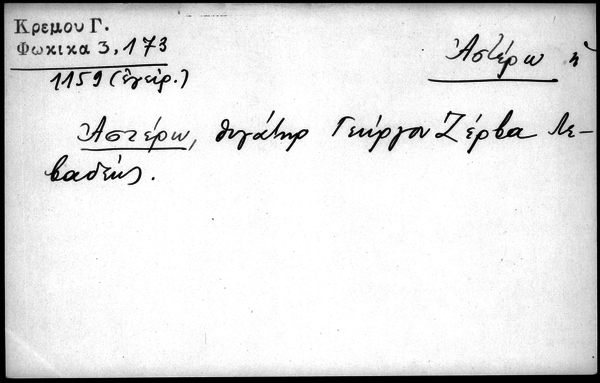 Κρεμου Γ.
Φωκικα 3, 173
1159 (ἐγείρ.)
Ἀστέρω ἡ
Ἀστέρω, θυγάτηρ Γεώργου Ζέρβα Λε-
βαδέως.